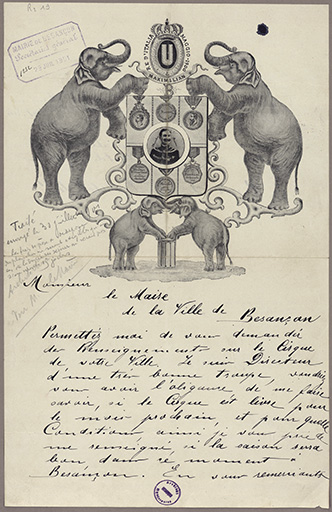 R. 19
MAIRIE DE BESANÇON
Secrétariat général
RE D'ITALIA MAGGIO 1900
U
MAXIMILIAN
Traité
Monsieur
le Maire
de la Ville de Besançon
Permettez moi de vous demander
des Renseignements sur le Cirque
de votre Ville je suis Directeur
d'une tres bonne troupe, voudriez
vous avoir l'obligance de me faire
savoir, si le Cirque est libre pour
le mois prochain et pour quelle
Conditions, ainsi je vous prie de
me renseigné, si la saison sera
bon dans ce moment à
Besançon. En vous remerciant